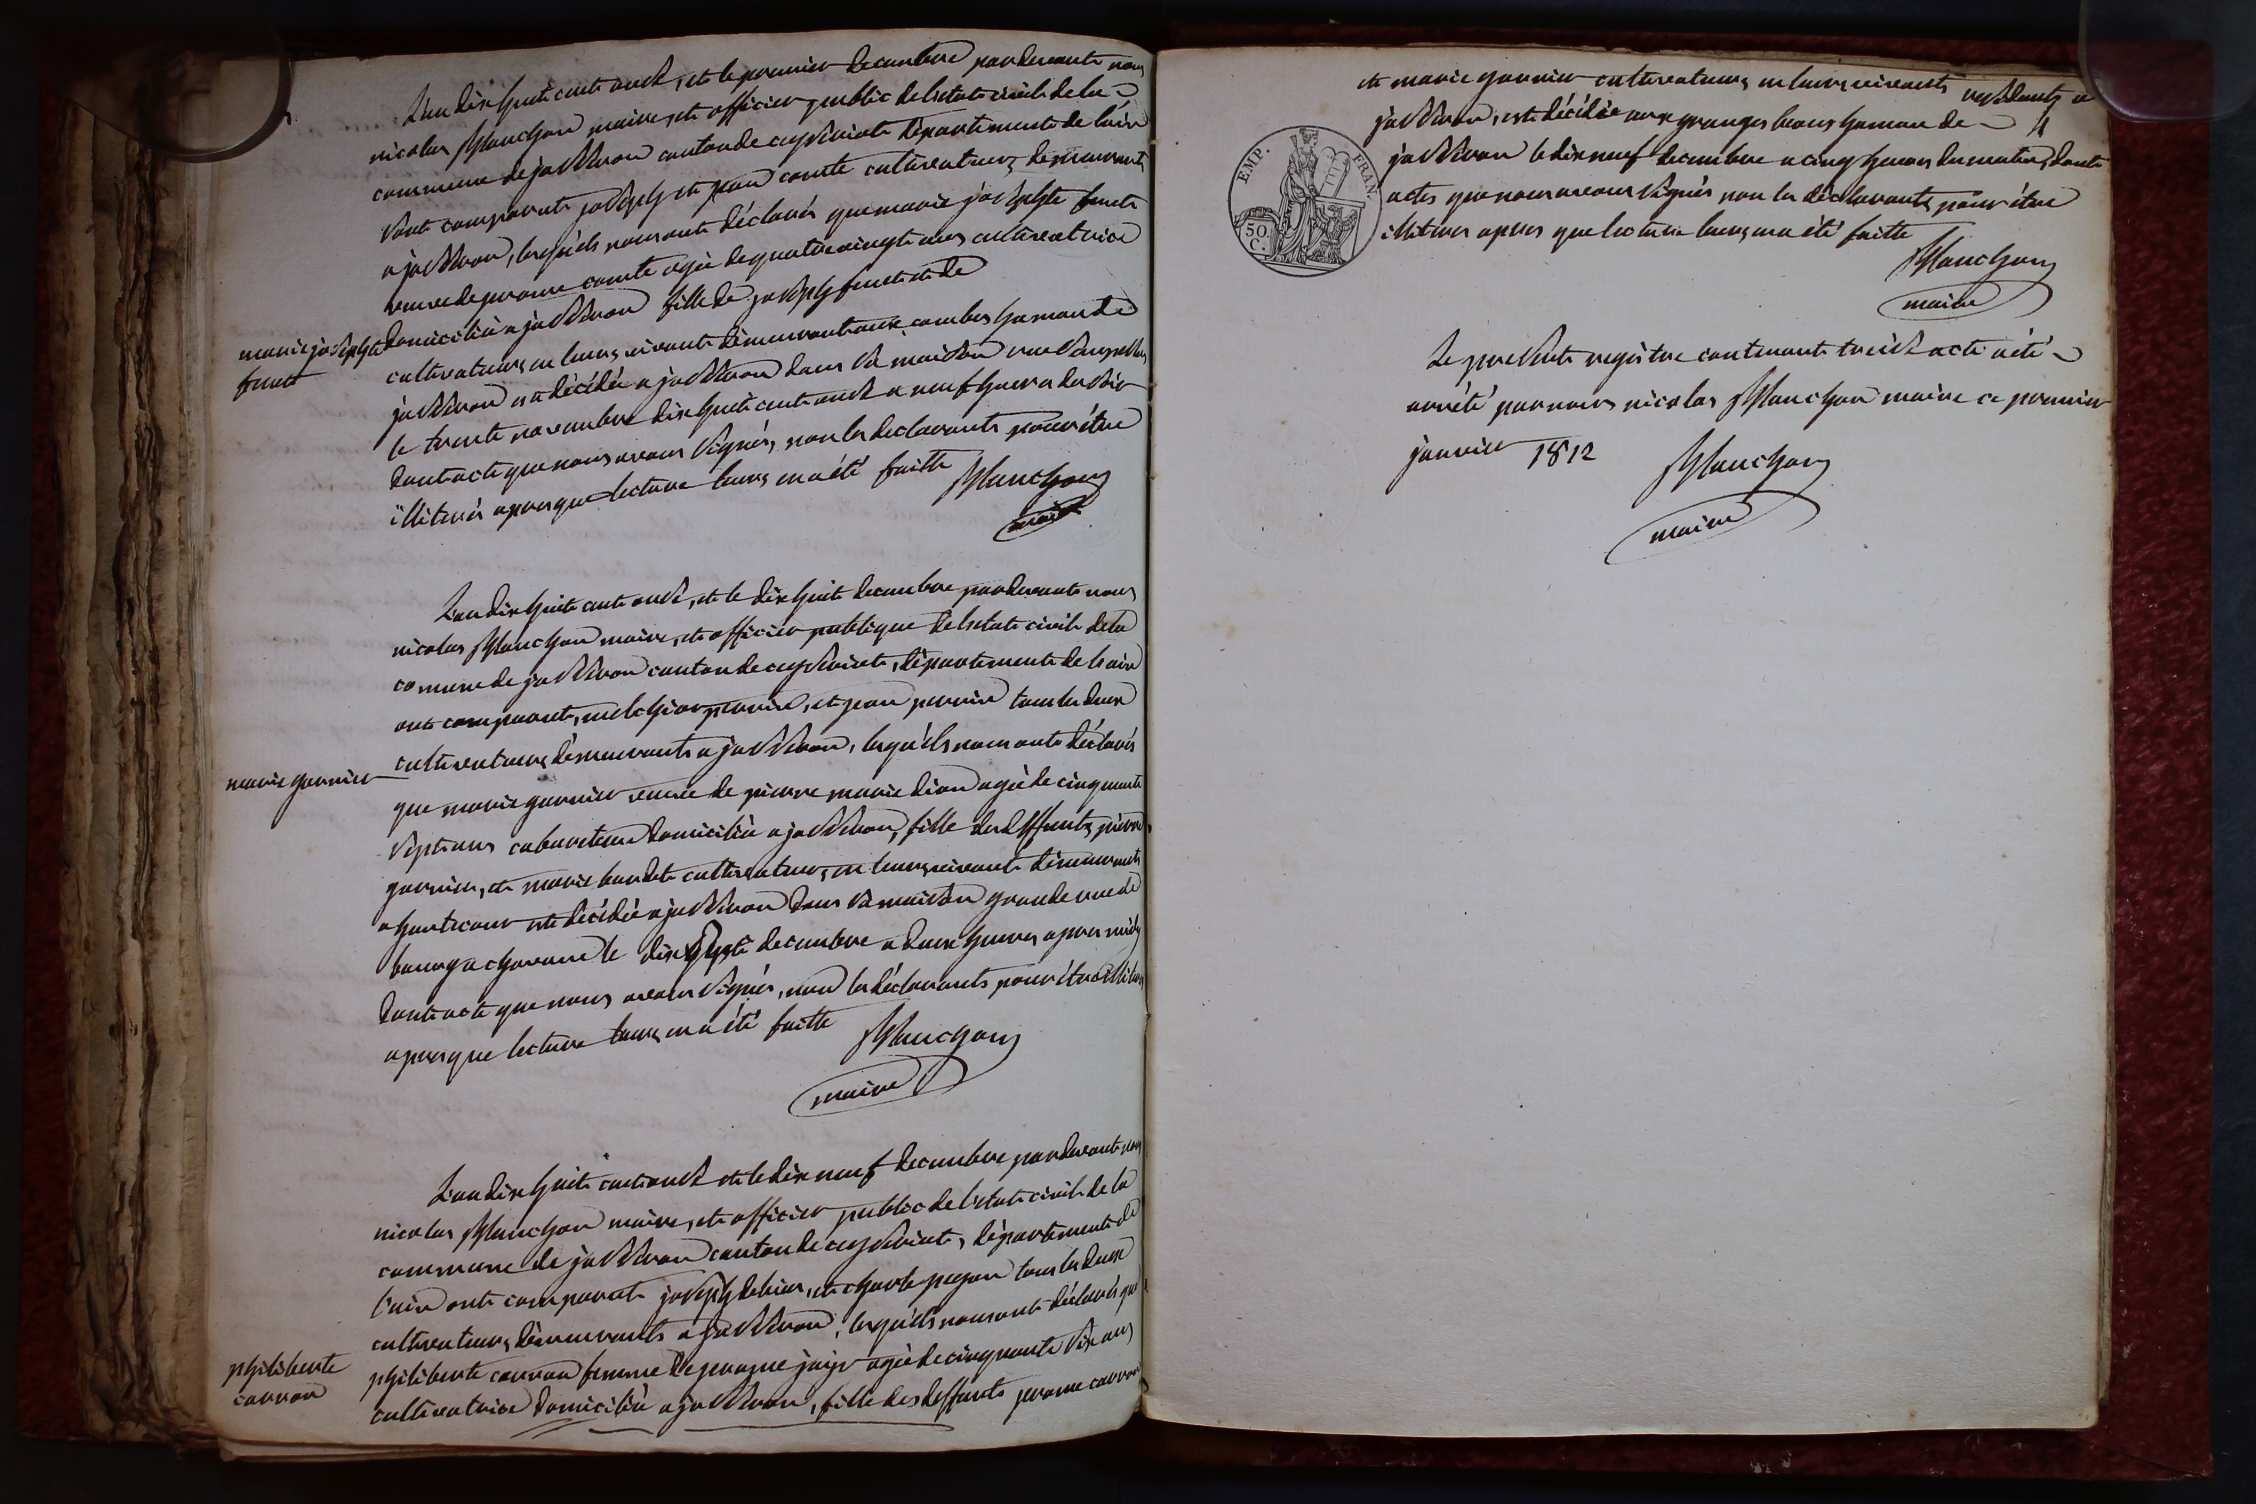 L'an dix huit cent onze, et le premier decembre pardevant nous
nicolas Planchon maire, et officier public de l'etat civil de la
commune de jasseron canton de ceyseriat departement de l'ain
sont comparut joseph et jean comte cultivateurs demeurant
a jasseron, lesquels nous ont déclarés que marie josephte
veuve de jerome comte agée de quatre vingt ans cultivatrice
domiciliée a jasseron fille de joseph et de
marie josephte
cultivateurs en leurs vivant démeurant aux combes hamau de
jasseron est décédée a jasseron dans sa maison rue
le trente novembre dix huit cent onze a neuf heures du soir
dont acte que nous avons signés, non les declarants pour étre
illiterés apres que lecture leurs en a été faitte Planchon
maire
L'an dix huit cent onze, et le dix huit decembre pardevant nous
nicolas Planchon maire, et officier publique de l'etat civil de la
comune de jasseron canton de ceyseriat, département de l'ain
ont comparut, melchior perrin, et jean perrin tous les deux
cultivateurs démeurants a jasseron, lesquels nous ont déclarés
marie garnier
que marie garnier veuve de pierre marie dion agée de cinquante
sept ans cabaretiere domiciliée a jasseron, fille des deffunts pierre
garnier, et marie baudet cultivateurs en leurs vivant démeurants
a hautecour est décédée a jasseron dans sa maison grande rue de
bourg a chavane le dix sept decembre a deux heures apres midy
dont acte que nous avons signés, non les déclarants pour étre illiterés
apres que lecture leurs en a été faitte Planchon
maire
L'an dix huit cent onze et le dix neuf decembre pardevant nous
nicolas Planchon maire, et officier public de l'etat civil de la
commune de jasseron canton de ceyseriat, département de
l'ain ont comparut joseph debias, et charle pegon tous les deux
cultivateurs démeurants a jasseron, lesquels nous ont déclarés que
philiberte
carron
philiberte carron femme de jerome agée de cinquante six ans
cultivatrice domiciliée a jasseron, fille des deffunts jerome carron
et marie garnier cultivateurs en leurs vivants residants a
jasseron, est décédée aux granges hamau de
jasseron le dix neuf decembre a cinq heures du matin, dont
actes que nous avons signés non les déclarants pour étre
illiteres apres que lecture leurs en a été faitte
Planchon
maire
EMP. FRAN.
50
C.
Le present registre contenant treize acte a été
arrété par nous nicolas Planchon maire ce premier
janvier 1812
Planchon
maire